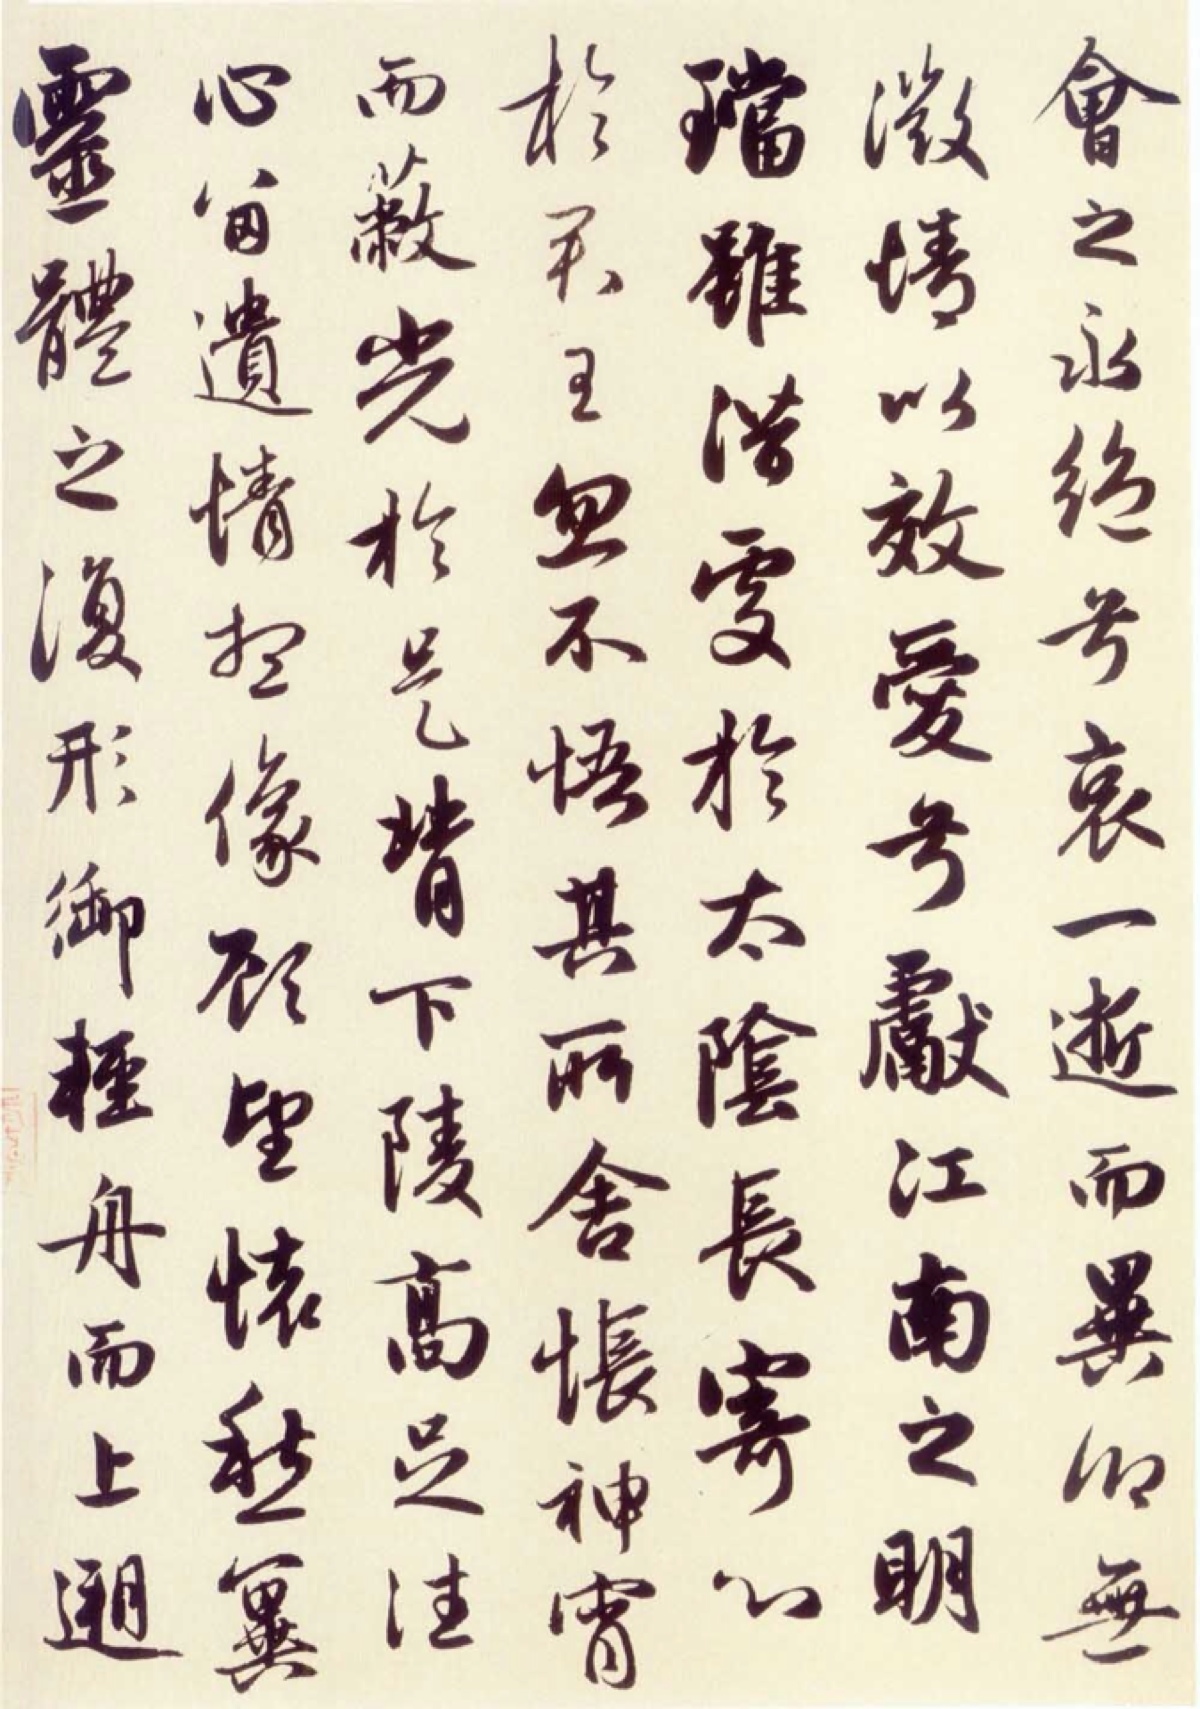 會之永絶兮哀一逝而異鄉無
微情以效愛兮獻江南之明
璫雖潛處於太陰長寄心
於君王忽不悟其所舍悵神宵
而蔽光於是背下陵高足往
心留遺情想像顧望懷愁冀
靈體之復形御輕舟而上遡